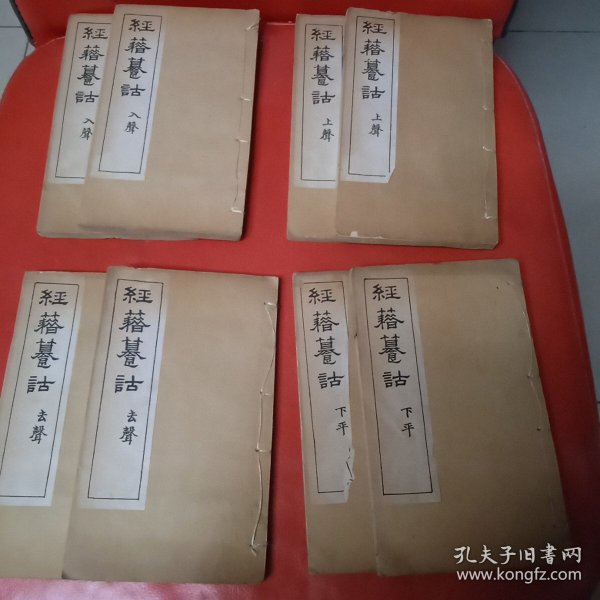 經藉籑詁
入聲
經藉籑詁
入聲
經藉籑詁
上聲
經藉籑詁
上聲
經藉籑詁
去聲
經藉籑詁
去聲
經藉籑詁
下平
經藉籑詁
下平
孔夫子旧书网
www.kongfz.com